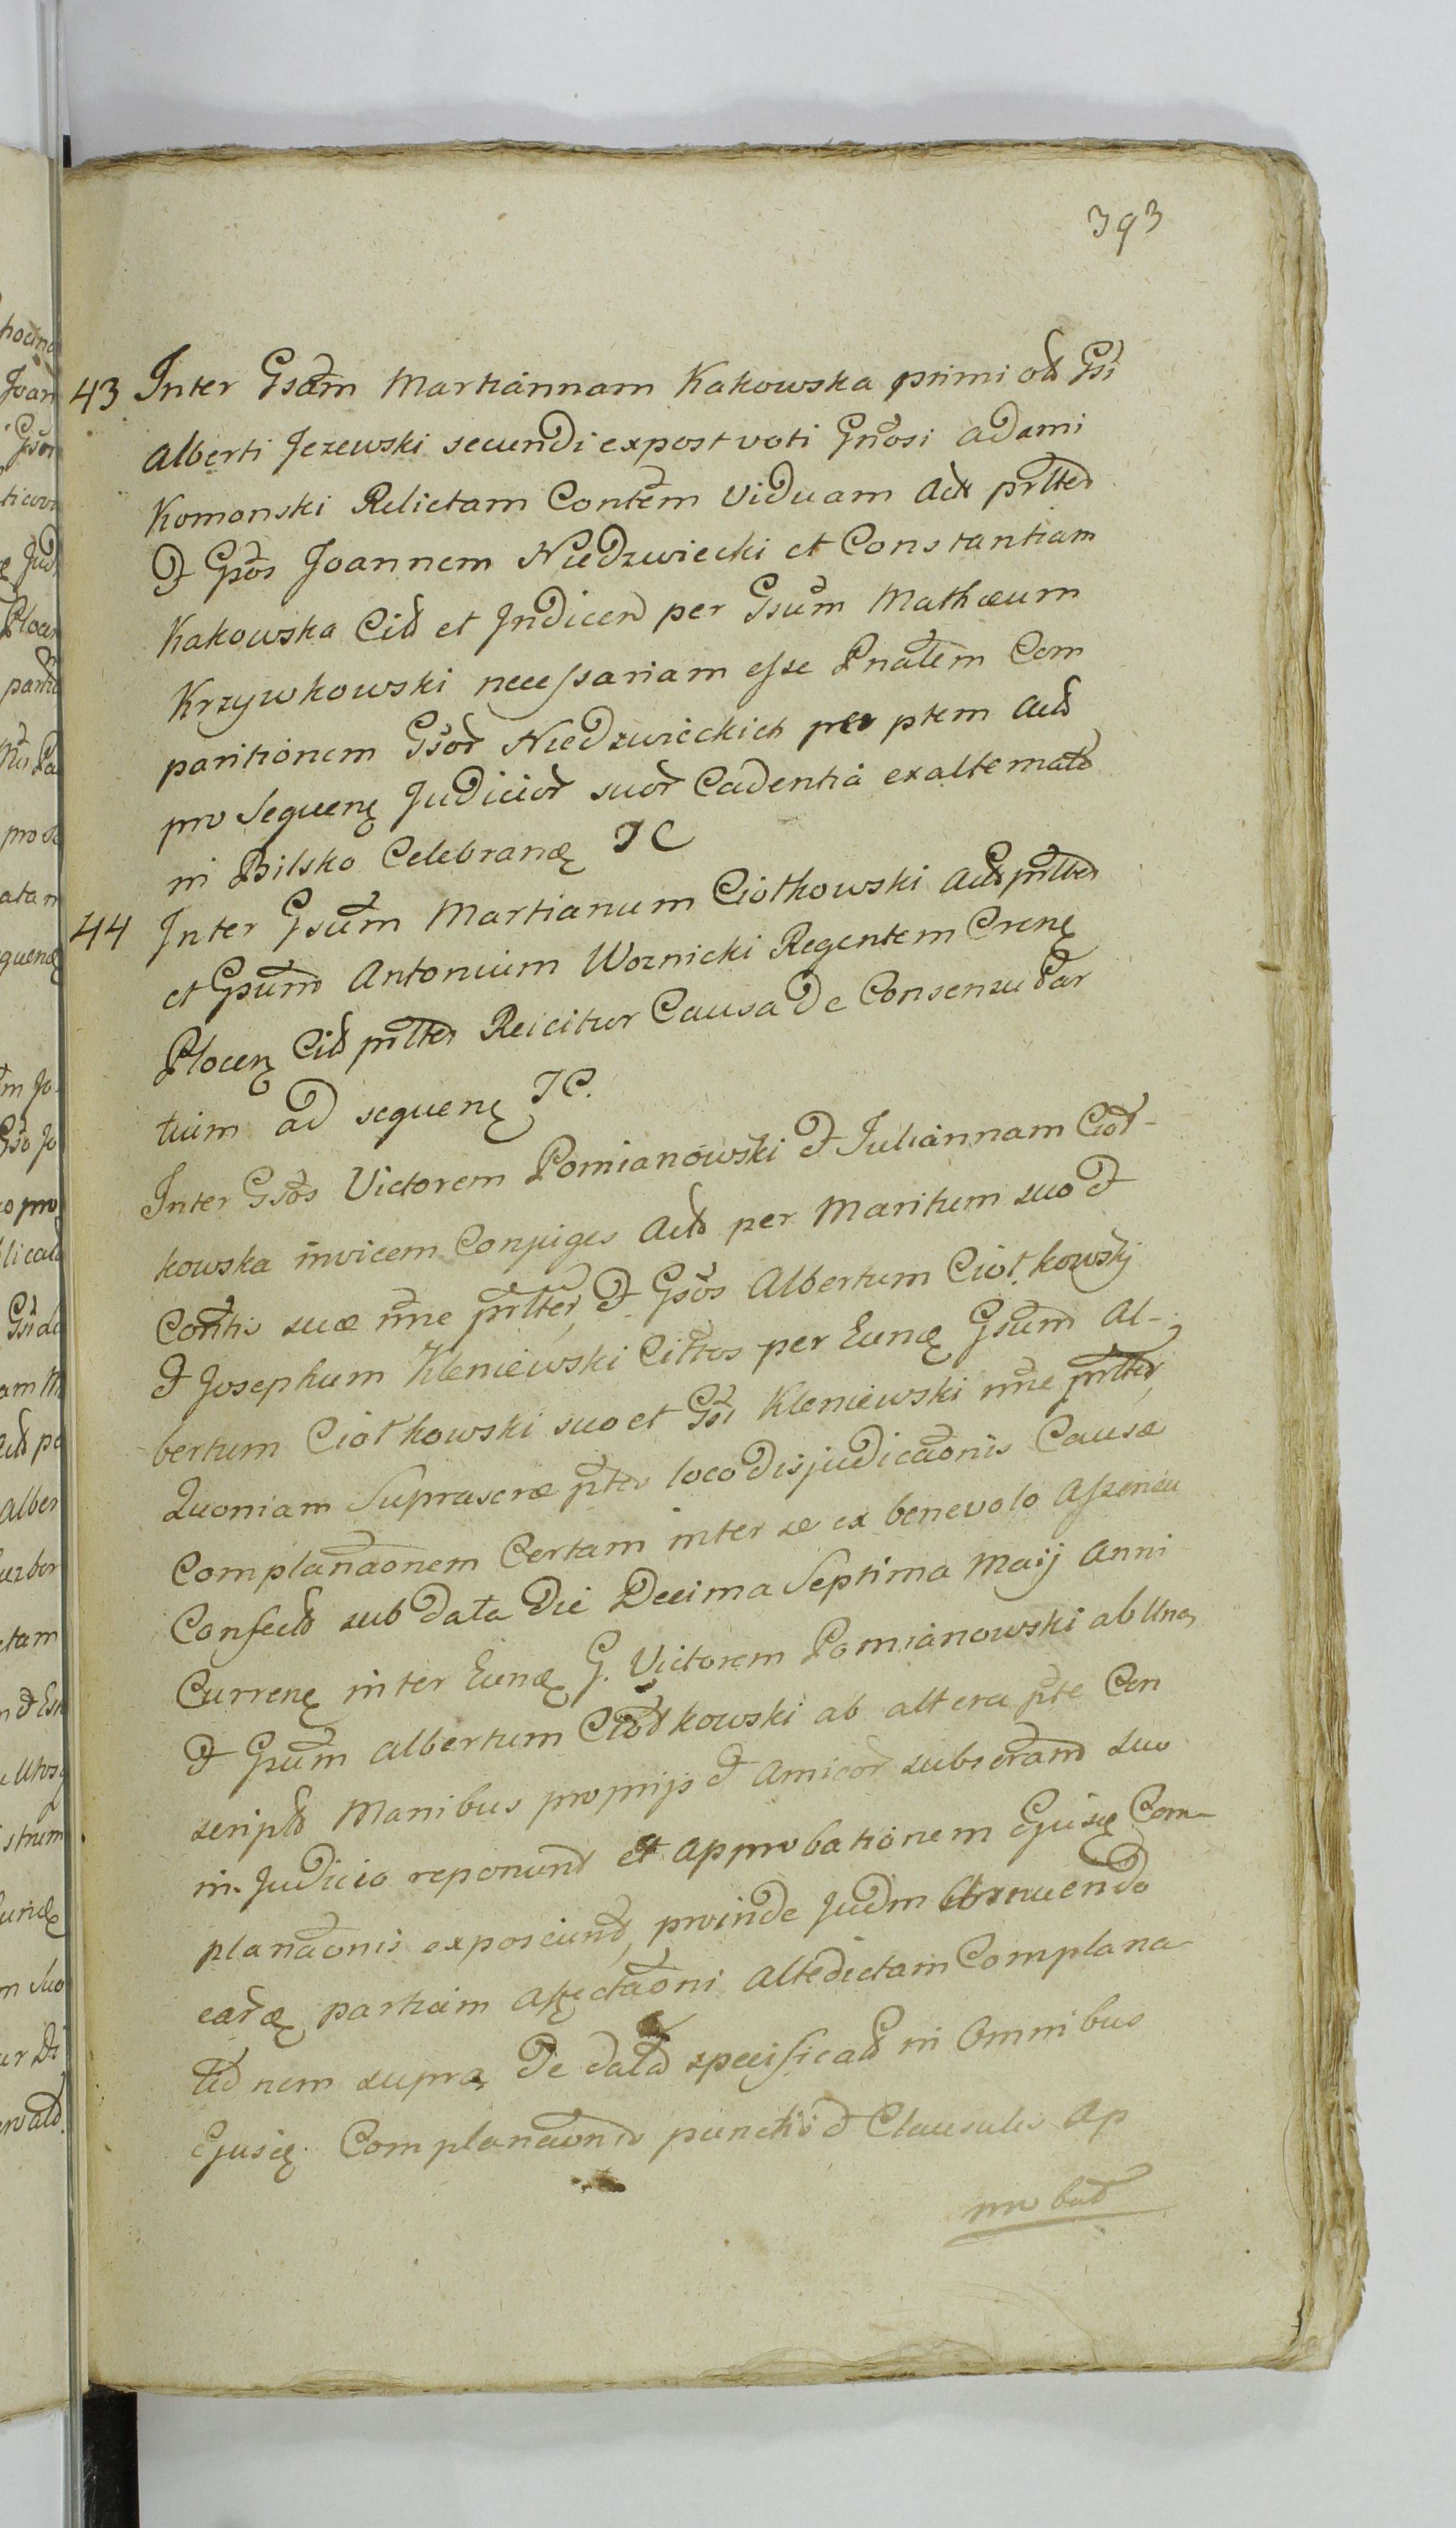 393
43 Inter Gsam Martiannam Kakowska primi od Gsi
Alberti Jezewski secundi expost voti Gnosi Adami
Komonski Relictam Contem Viduam Act prltes
et Gsos Joannem Niedzwiecki et Constantiam
Kakowska Cit et Indicen per Gsum Mathæum
Krzywkowski necessariam esse Pnalem Com
paritionem Gsor Niedzwieckich per ptem Act
pro Sequenę Judicior suor Cadentia exalternat
in Bilsko Celebranæ TC
44 Inter Gsum Martianum Ciotkowski Act prltes
et Gsum Antonium Woznicki Regentem Crenę
Plocenę Cit prltes Reicitur Causa De Consensu Par
tium ad sequenę TC.
Inter Gsos Victorem Pomianowski et Juliannam Ciot-
kowska invicem Conjuges Act per Maritum suo et
Contis suæ nne prlter, et Gsos Albertum Ciotkowskj
et Josephum Kleniewski Cittos per Eundę Gsum Al-
bertum Ciotkowski suo et Gsi Kleniewski nne prlter,
Quoniam Suprascræ ptes loco disjudicaonis Causæ
Complanaonem Certam inter se ex benevolo Assensu
Confect sub data Die Decima Septima Maij Anni
Currenę inter Eundę G. Victorem Pomianowski ab Una,
et Gsum Albertum Ciotkowski ab altera pte Con
script Manibus proprijs et Amicor subscram suo
in Judicio reponunt et Approbationem Ejusdę Com-
planaonis exposcunt, proinde Judm
eardę partium Affectaoni Altedictam Complana
tionem supra, De data specificat in Omnibus
Ejusdę Complanaonis punctis et Clausulis Ap
probat